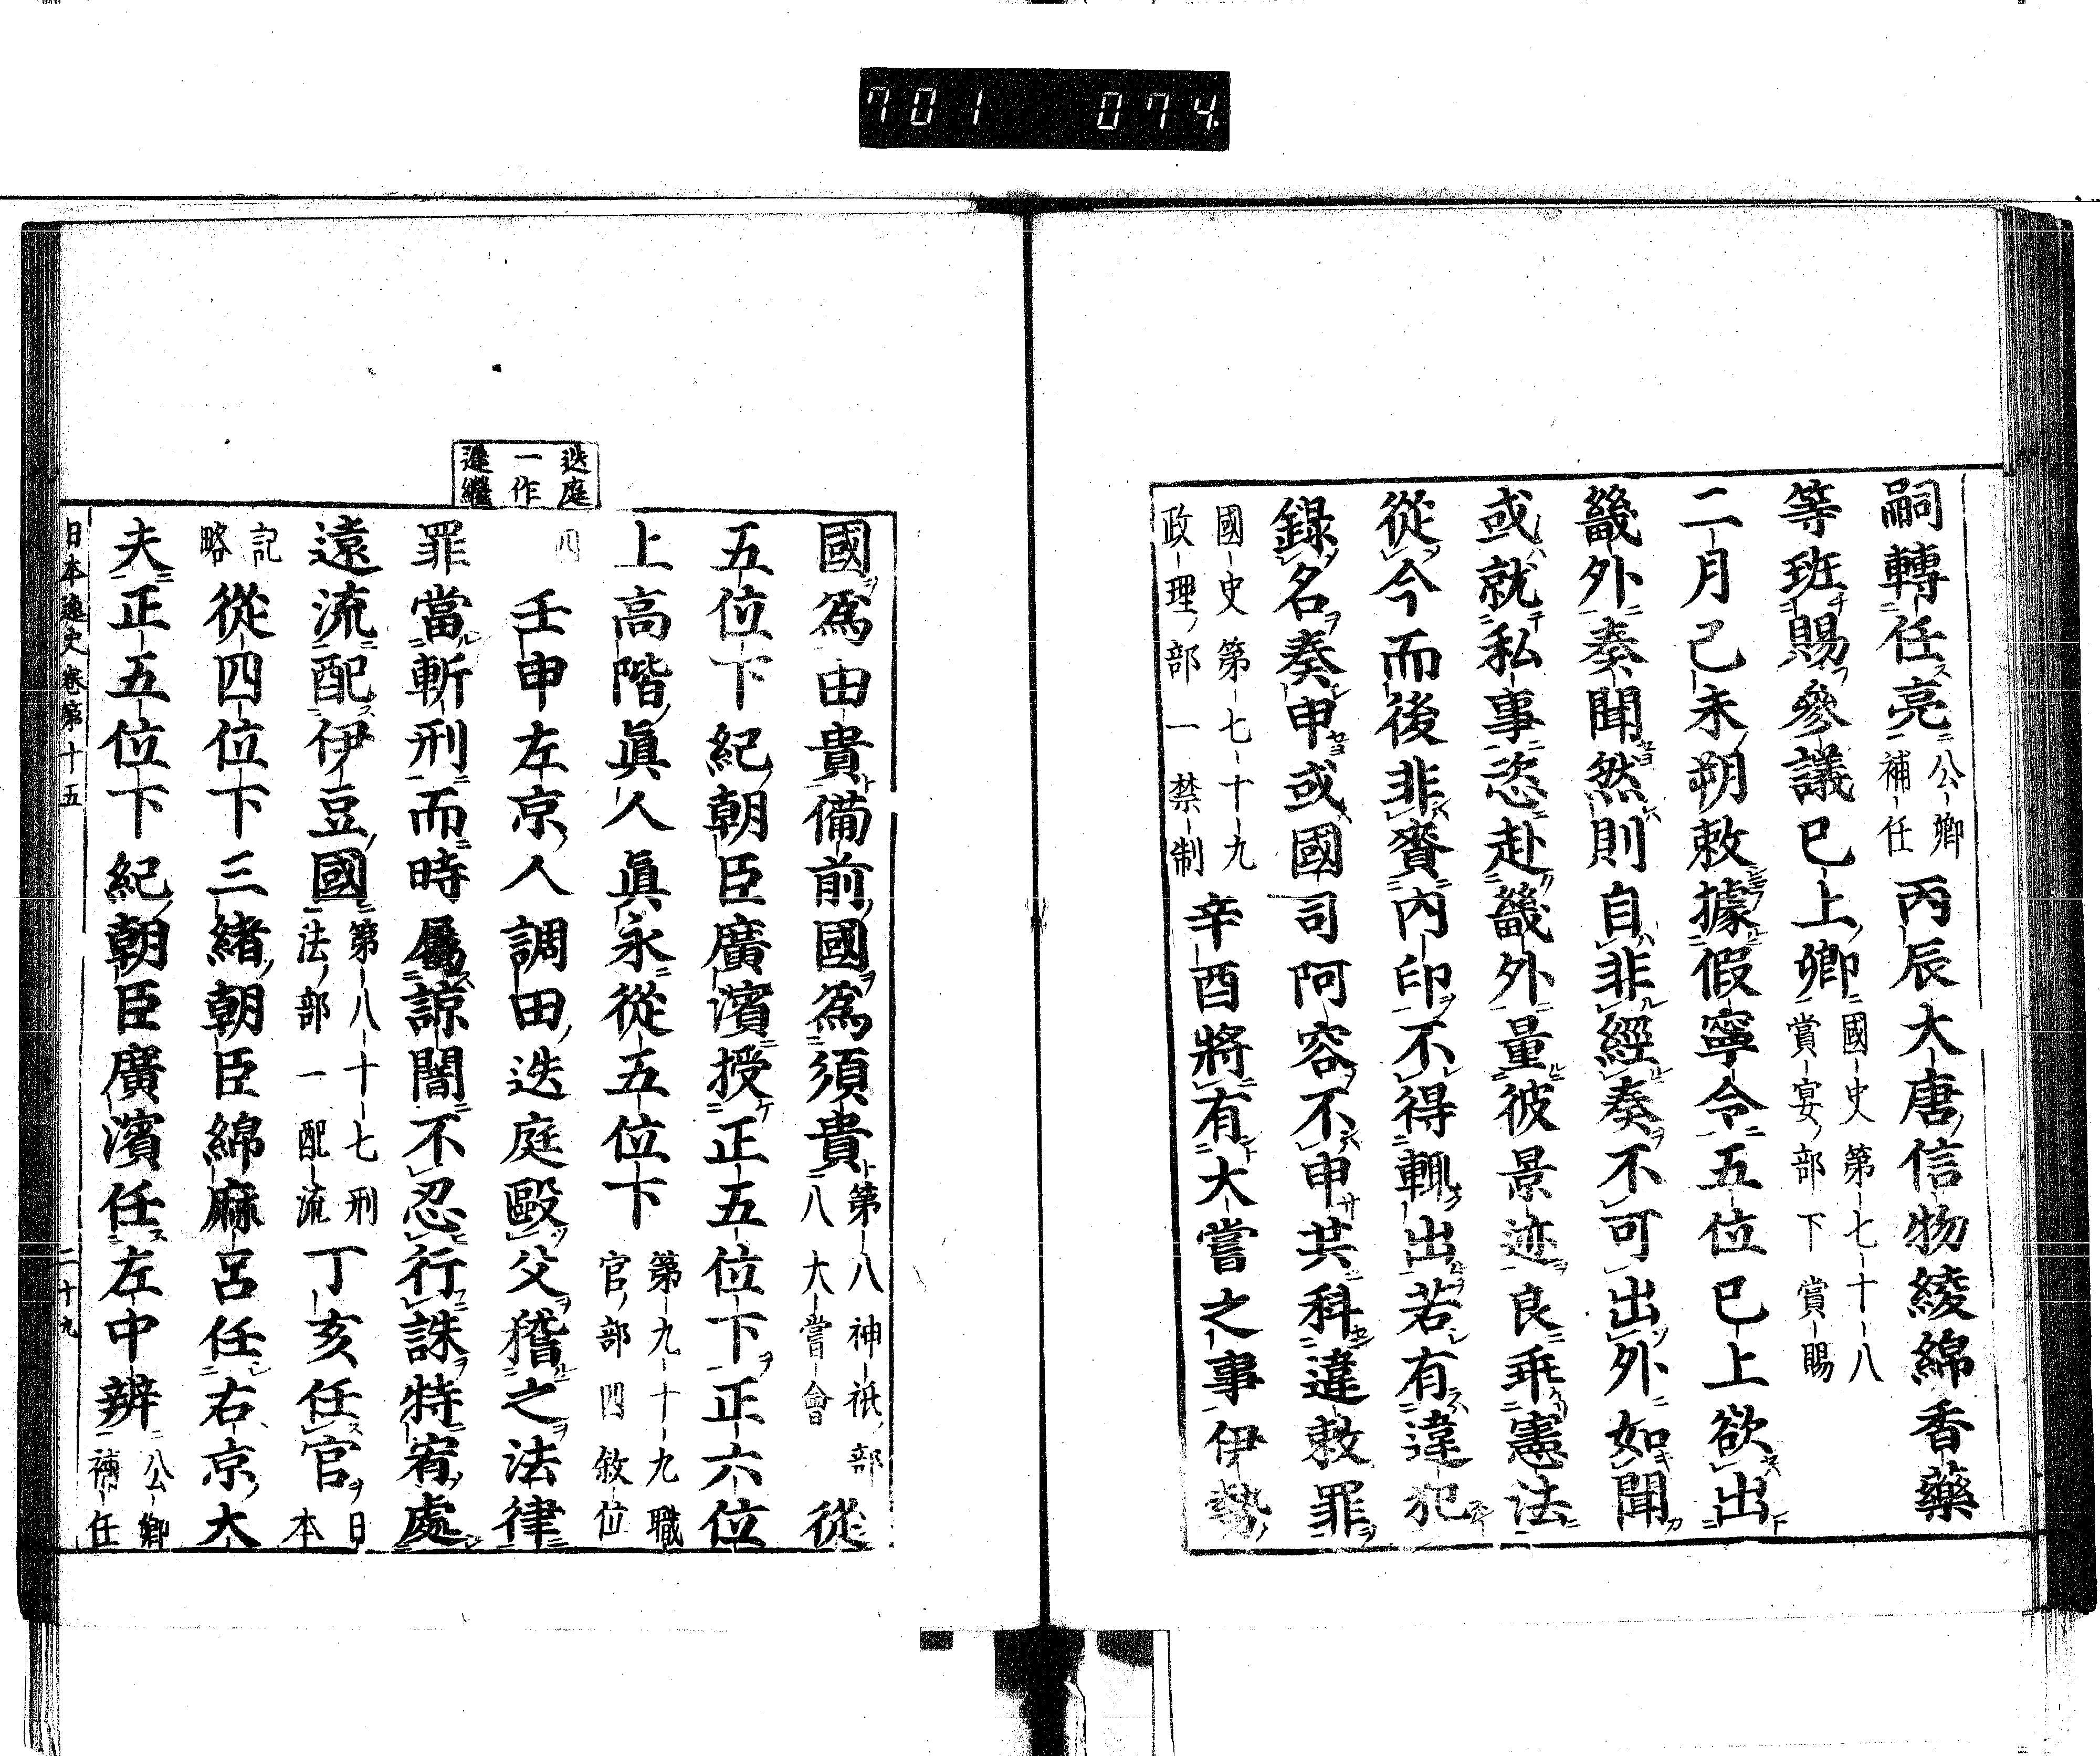 701 074
嗣轉任亮 公卿補任 丙辰大唐信物綾綿香藥
等班賜參議已上卿 國史第七十八賞宴部下賞賜
二月己未朔敕據假寧令五位已上欲出
畿外奏聞然則自非經奏不可出外如聞
或就私事恣赴畿外量彼景迹良乖憲法
從今而後非賚內印不得輙出若有違犯
錄名奏申或國司阿容不申共科違敕罪
國史第七十九政理部一禁制 辛酉將有大嘗之事伊勢
國爲由貴備前國爲須貴 第八神祇部八大嘗會 從
五位下紀朝臣廣濱授正五位下正六位
上高階眞人眞永從五位下 第九十九職官部四敘位
壬申左京人調田迭庭毆父稽之法律
罪當斬刑而時屬諒闇不忍行誅特宥處
遠流配伊豆國 第八十七刑法部一配流 丁亥任官 日本
記略 從四位下三緒朝臣綿麻呂任右京大
夫正五位下紀朝臣廣濱任左中辨 公卿補任
迭庭
一作
繼
日本逸史卷第十五 二十九